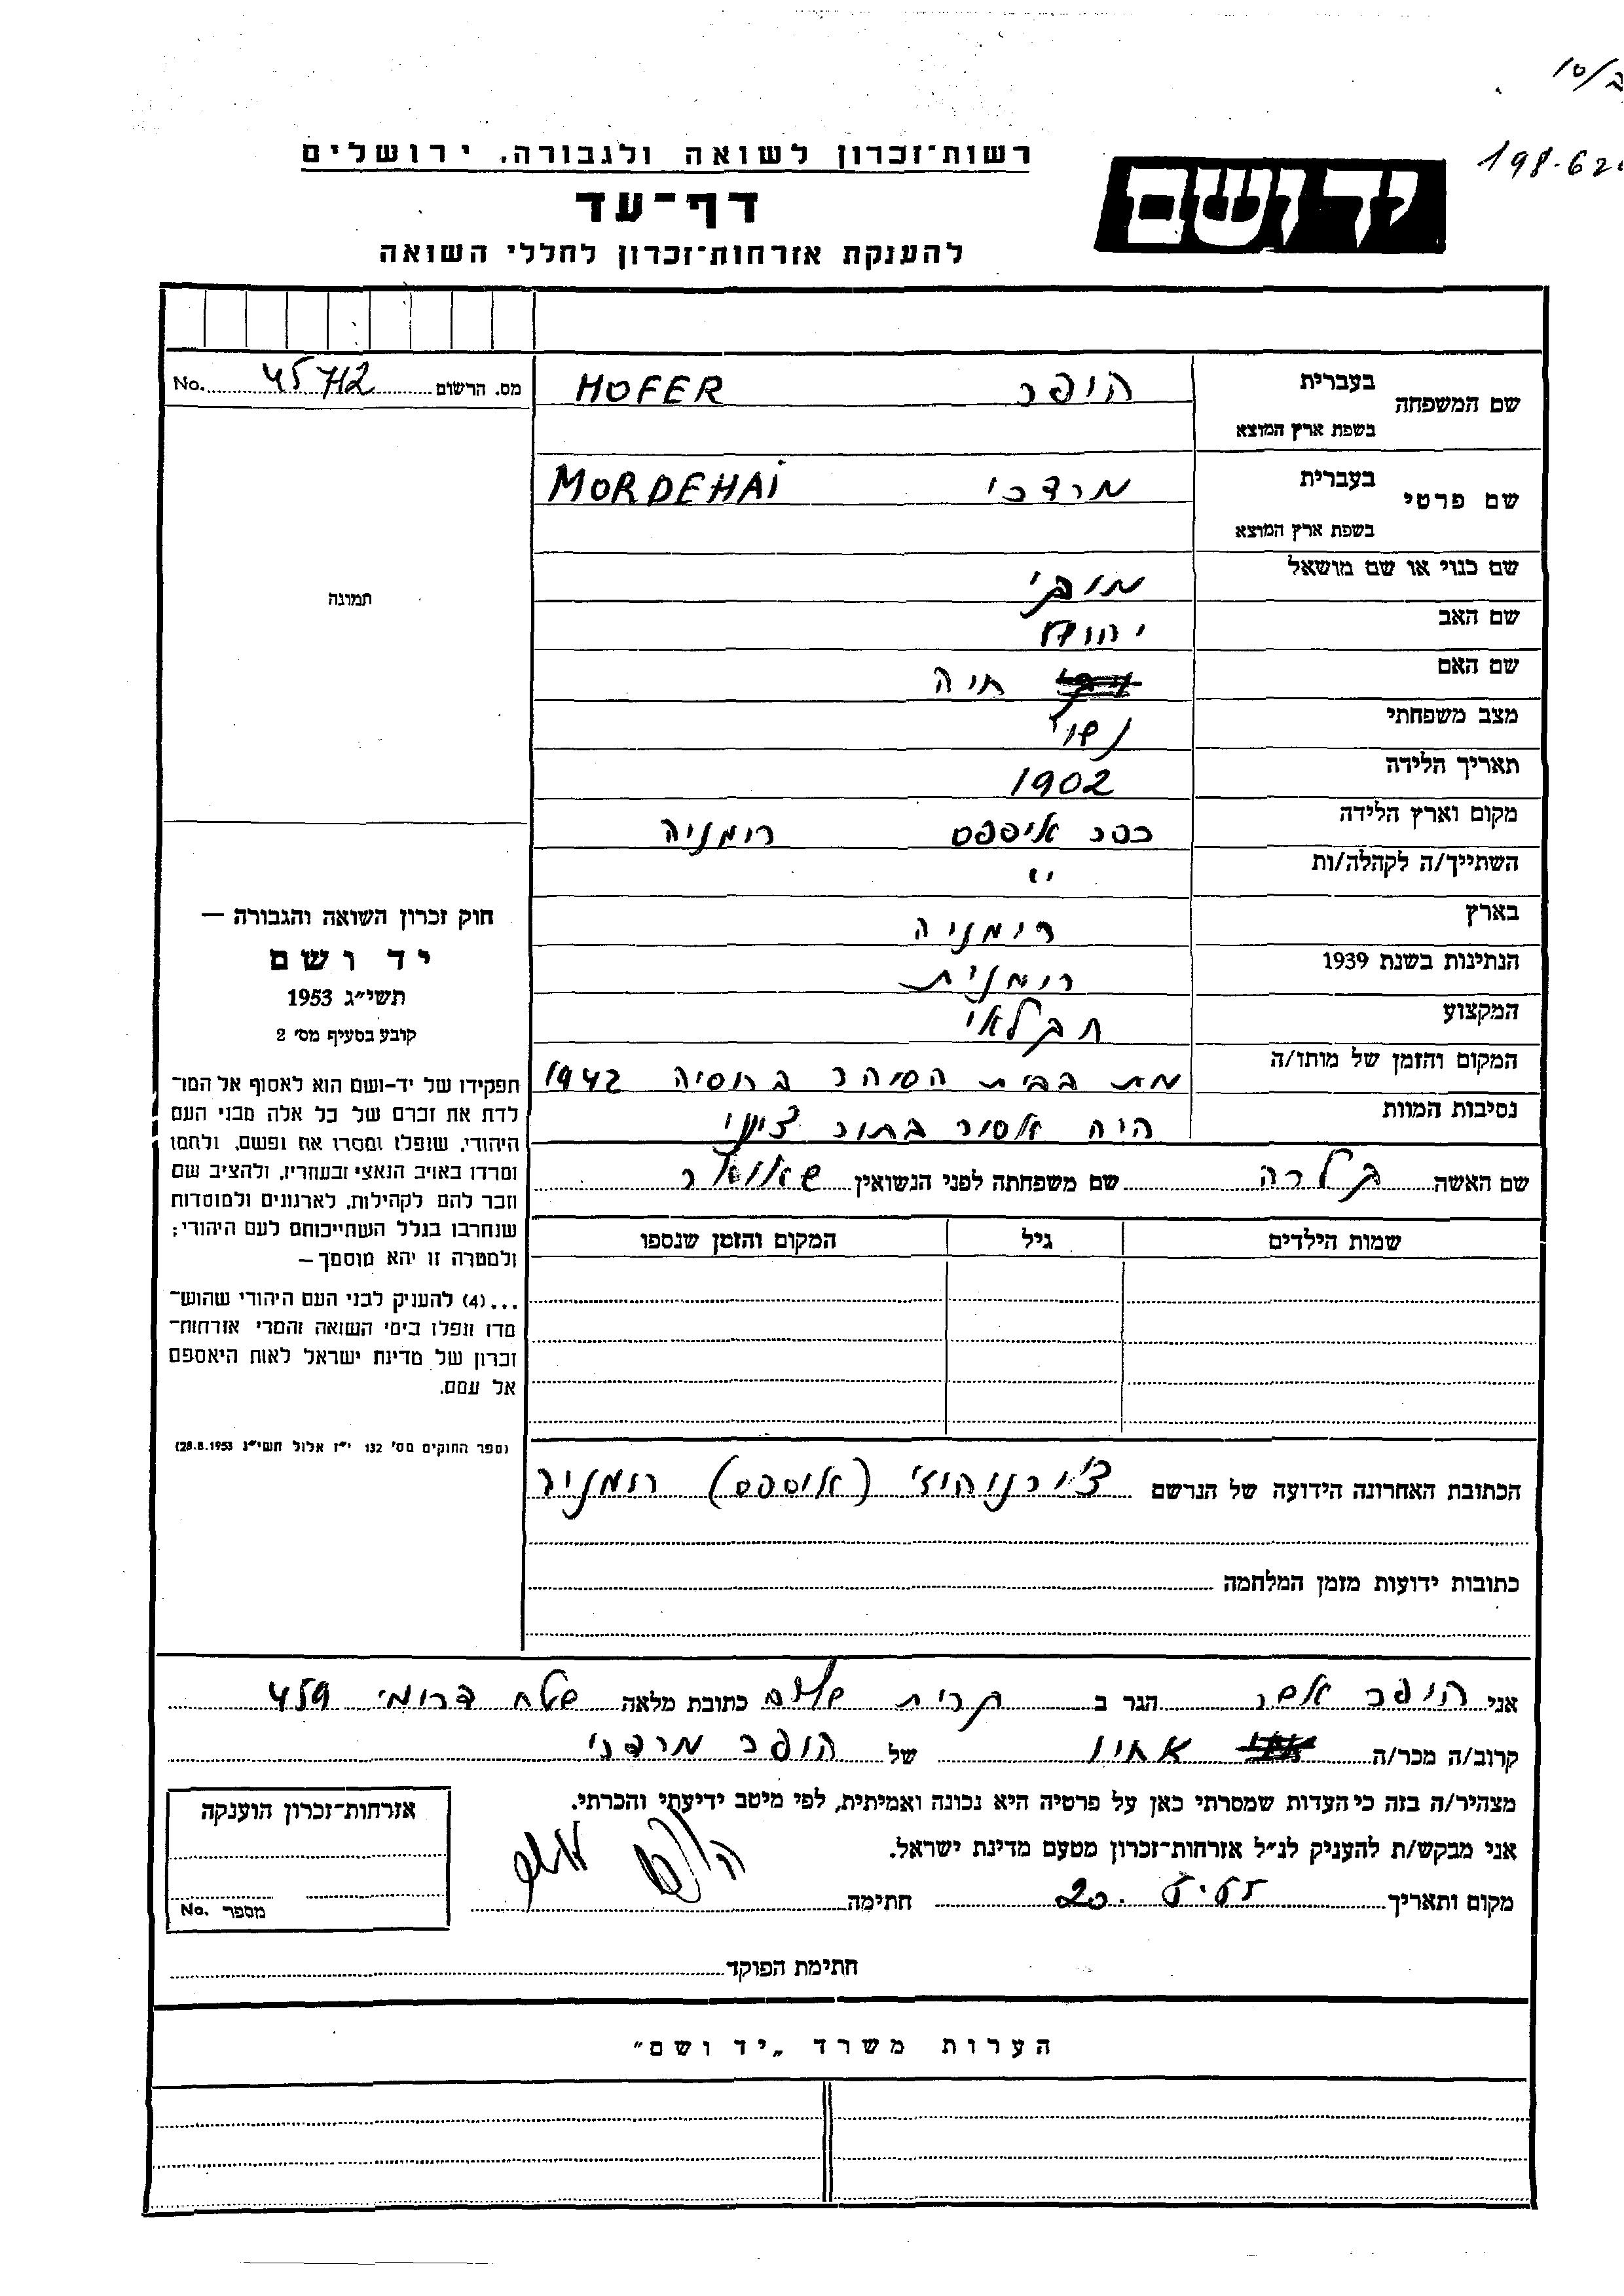 10/
198.62
רשות־זכרון לשואה ולגבורה, ירושלים
יד ושם
דף־עד
להענקת אזרחות־זכרון לחללי השואה
מס. הרשום 45712 No.
שם המשפחה בעברית הופר HOFER
בשפת ארץ המוצא
שם פרטי בעברית מרדכי MORDEHAI
בשפת ארץ המוצא
שם כנוי או שם מושאל מוקי
תמונה
שם האב יהודה
שם האם חיה
מצב משפחתי נשוי
תאריך הלידה 1902
מקום וארץ הלידה כפר איספס רומניה
השתייך/ה לקהלה/ות "
בארץ רומניה
הנתינות בשנת 1939 רומנית
המקצוע חקלאי
המקום והזמן של מותו/ה מת בבית הסוהר ברוסיה 1942
נסיבות המוות היה אסור בתור ציוני
שם האשה קלרה שם משפחתה לפני הנשואין
שמות הילדים גיל המקום והזמן שנספו
הכתובת האחרונה הידועה של הנרשם (איספס) רומניה
כתובות ידועות מזמן המלחמה
חוק זכרון השואה והגבורה —
יד ושם
תשי״ג 1953
קובע בסעיף מס׳ 2
תפקידו של יד-ושם הוא לאסוף אל המו־
לדת את זכרם של כל אלה מבני העם
היהודי, שנפלו ומסרו את נפשם, ולחמו
ומרדו באויב הנאצי ובעוזריו, ולהציב שם
וזכר להם לקהילות, לארגונים ולמוסדות
שנחרבו בגלל השתייכותם לעם היהודי;
ולמטרה זו יהא מוסמך —
...(4) להעניק לבני העם היהודי שהוש־
מדו ונפלו בימי השואה והמרי אזרחות־
זכרון של מדינת ישראל לאות היאספם
אל עמם.
(ספר החוקים מס׳ 132 י״ז אלול תשי״ג 28.8.1953)
אני הופר אשר הגר ב קרית שלום כתובת מלאה שטח דרומי 459
קרוב/ה מכר/ה אחיו של הופר מרדכי
מצהיר/ה בזה כי העדות שמסרתי כאן על פרטיה היא נכונה ואמיתית, לפי מיטב ידיעתי והכרתי.
אני מבקש/ת להעניק לנ״ל אזרחות־זכרון מטעם מדינת ישראל.
מקום ותאריך 20. חתימה הופר אשר
חתימת הפוקד
אזרחות־זכרון הוענקה
מספר No.
הערות משרד „יד ושם״